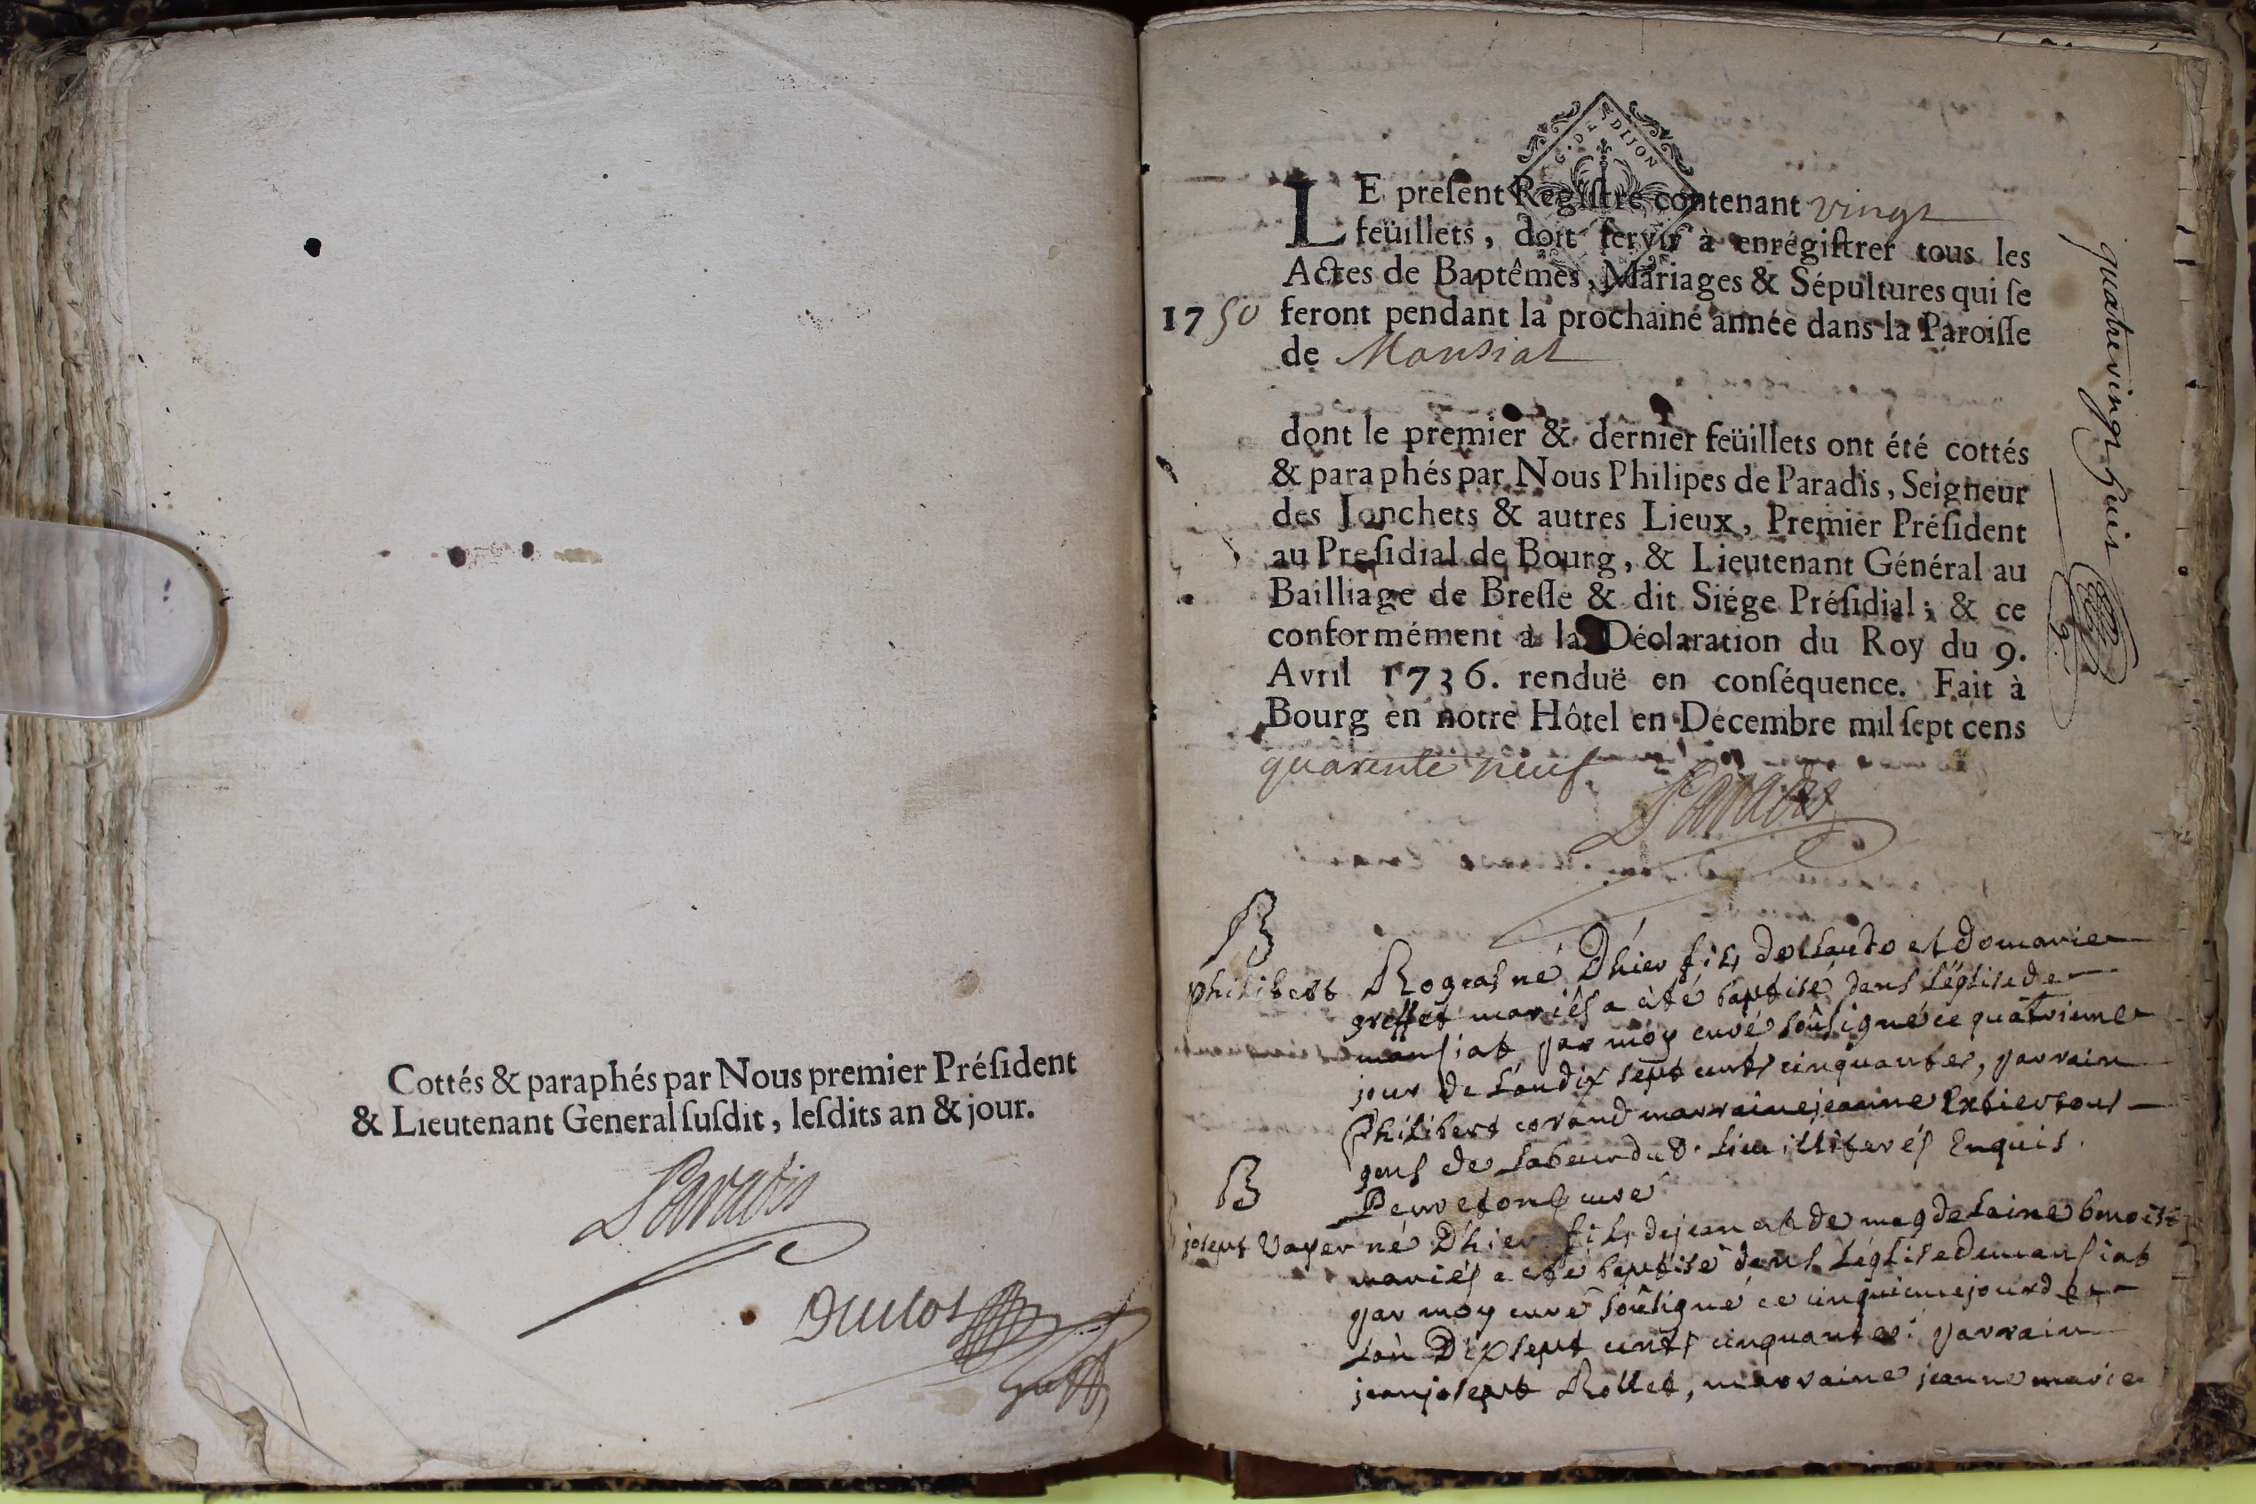 Cottés & paraphés par Nous premier Préſident
& Lieutenant General ſuſdit, leſdits an & jour.
Paradis
Duclos
G. DE DIJON
LE preſent Regiſtre contenant vingt
feüillets, doit ſervir à enrégiſtrer tous les
Actes de Baptêmes, Mariages & Sépultures qui ſe
1750 feront pendant la prochaine année dans la Paroiſſe
de Mansiat
dont le premier & dernier feüillets ont été cottés
& paraphés par Nous Philipes de Paradis, Seigneur
des Jonchets & autres Lieux, Premier Préſident
au Preſidial de Bourg, & Lieutenant Général au
Bailliage de Breſſe & dit Siége Préſidial; & ce
conformément à la Déclaration du Roy du 9.
Avril 1736. renduë en conſéquence. Fait à
Bourg en notre Hôtel en Decembre mil ſept cens
quarente neuf
Paradis
quatrevingt huit
B
philibert né D'hier fils de et de marie
greffet mariés a été baptisé dans L'église de
mansiat par moy curé soûsigné ce quatrieme
jour de L'an dix sept cents cinquante, parrain
philibert corand marraine jeanne tous
gens de Labeur du d. Lieu illiterés Enquis
curé
B
joseph Vayer né D'hier fils de jean et de magdelaine benoist
mariés a été baptisé dans L'église de mansiat
par moy curé soûsigné ce cinquieme jour de
L'an Dix sept cents cinquante: parrain
jean joseph Rollet, marraine jeanne marie